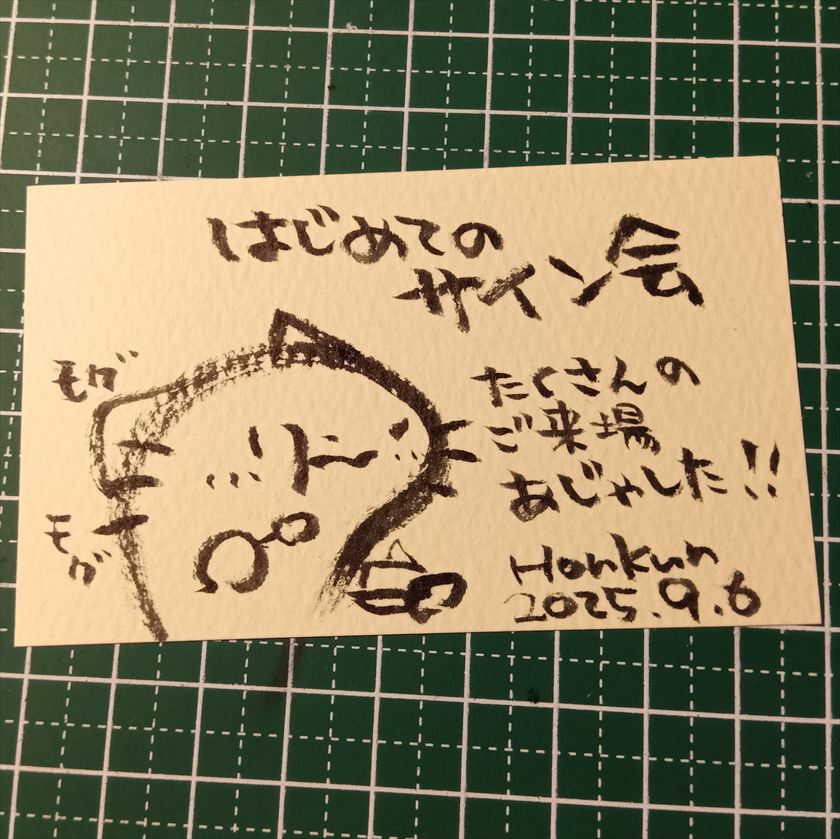 はじめての
サイン会
モグ
モグ
たくさんの
ご来場
あじゃしした!!
Honkun
2025.9.6